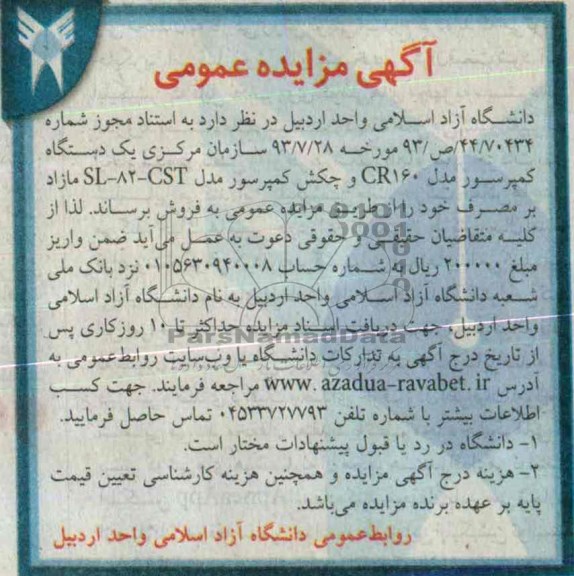 آگهی مزایده عمومی
دانشگاه آزاد اسلامی واحد اردبیل در نظر دارد به استناد مجوز شماره
۴۴/۷۰۴۳۴/ص/۹۳ مورخه ۹۳/۷/۲۸ سازمان مرکزی یک دستگاه
کمپرسور مدل CR۱۶۰ و چکش کمپرسور مدل SL-۸۲-CST مازاد
بر مصرف خود را از طریق مزایده عمومی به فروش برساند. لذا از
کلیه متقاضیان حقیقی و حقوقی دعوت به عمل می‌آید ضمن واریز
مبلغ ۲۰۰۰۰۰ ریال به شماره حساب ۰۱۰۵۶۳۰۹۴۰۰۰۸ نزد بانک ملی
شعبه دانشگاه آزاد اسلامی واحد اردبیل به نام دانشگاه آزاد اسلامی
واحد اردبیل، جهت دریافت اسناد مزایده حداکثر تا ۱۰ روزکاری پس
از تاریخ درج آگهی به تدارکات دانشگاه یا وب‌سایت روابط‌عمومی به
آدرس www.azadua-ravabet.ir مراجعه فرمایند. جهت کسب
اطلاعات بیشتر با شماره تلفن ۰۴۵۳۳۷۲۷۷۹۳ تماس حاصل فرمایید.
۱- دانشگاه در رد یا قبول پیشنهادات مختار است.
۲- هزینه درج آگهی مزایده و همچنین هزینه کارشناسی تعیین قیمت
پایه بر عهده برنده مزایده می‌باشد.
روابط‌عمومی دانشگاه آزاد اسلامی واحد اردبیل
ParsNamadData